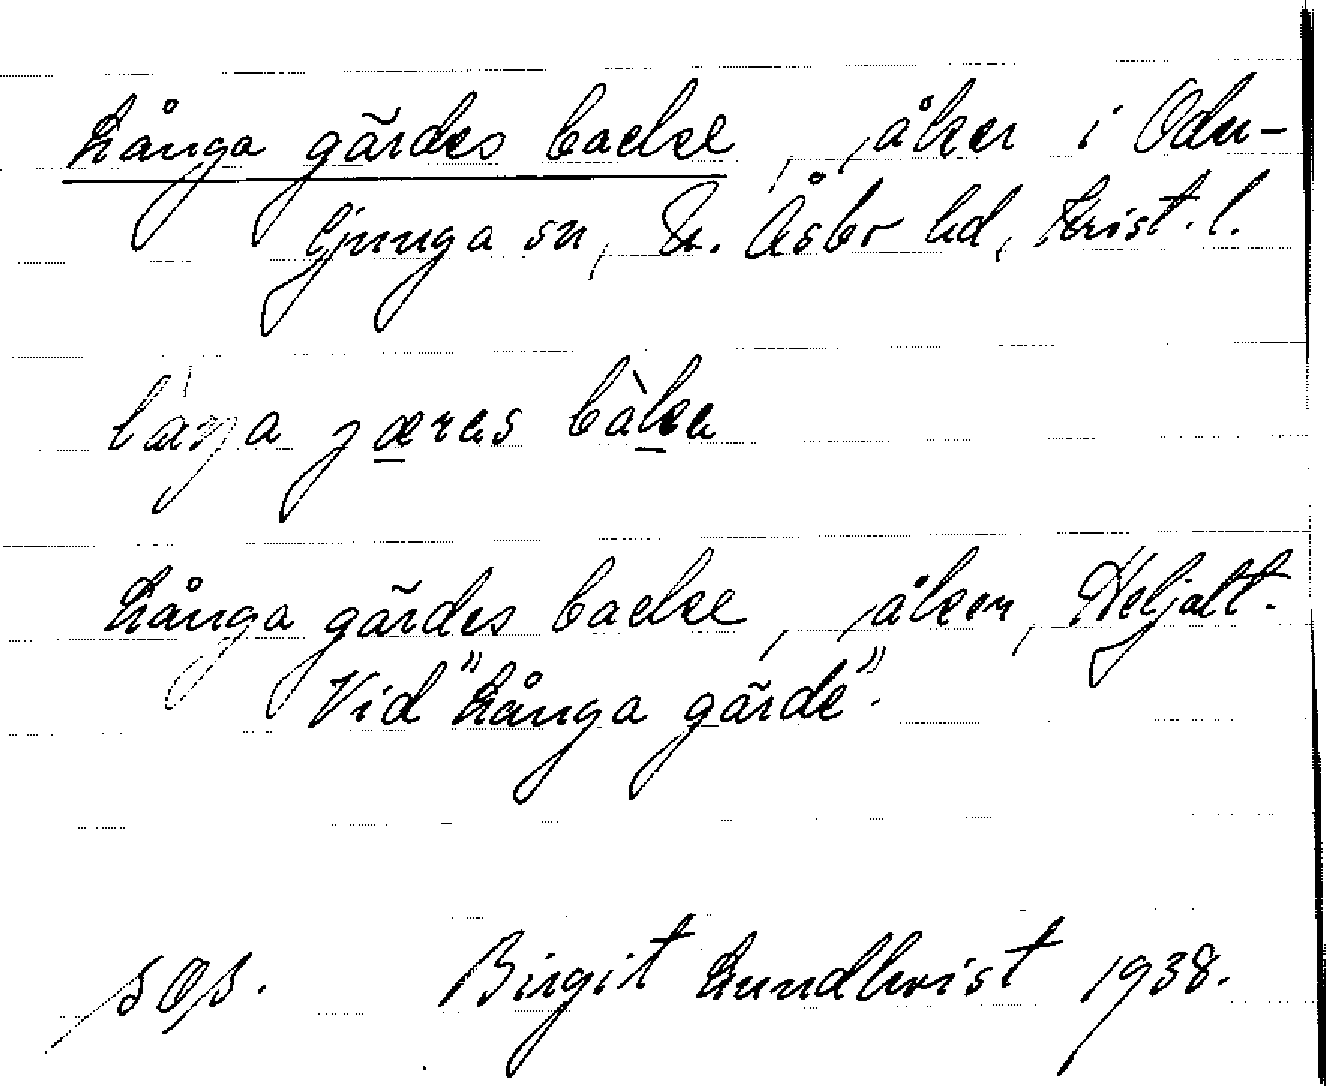 Långa gärdes backe, åker i Oder-
ljunga sn, N. Åsbo hd, Krist. l.
Långa gärdes backe, åker, Heljalt.
Vid "Långa gärde".
SOS. Birgit Lundkvist 1938.